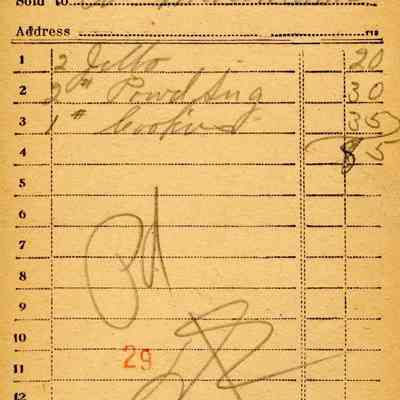 Sold to
Address
1 2 Jello 20
2 2# Powd Sug 30
3 1# Cookies 35
4 85
5
6
7 Pd
8
9
10
29
11
12